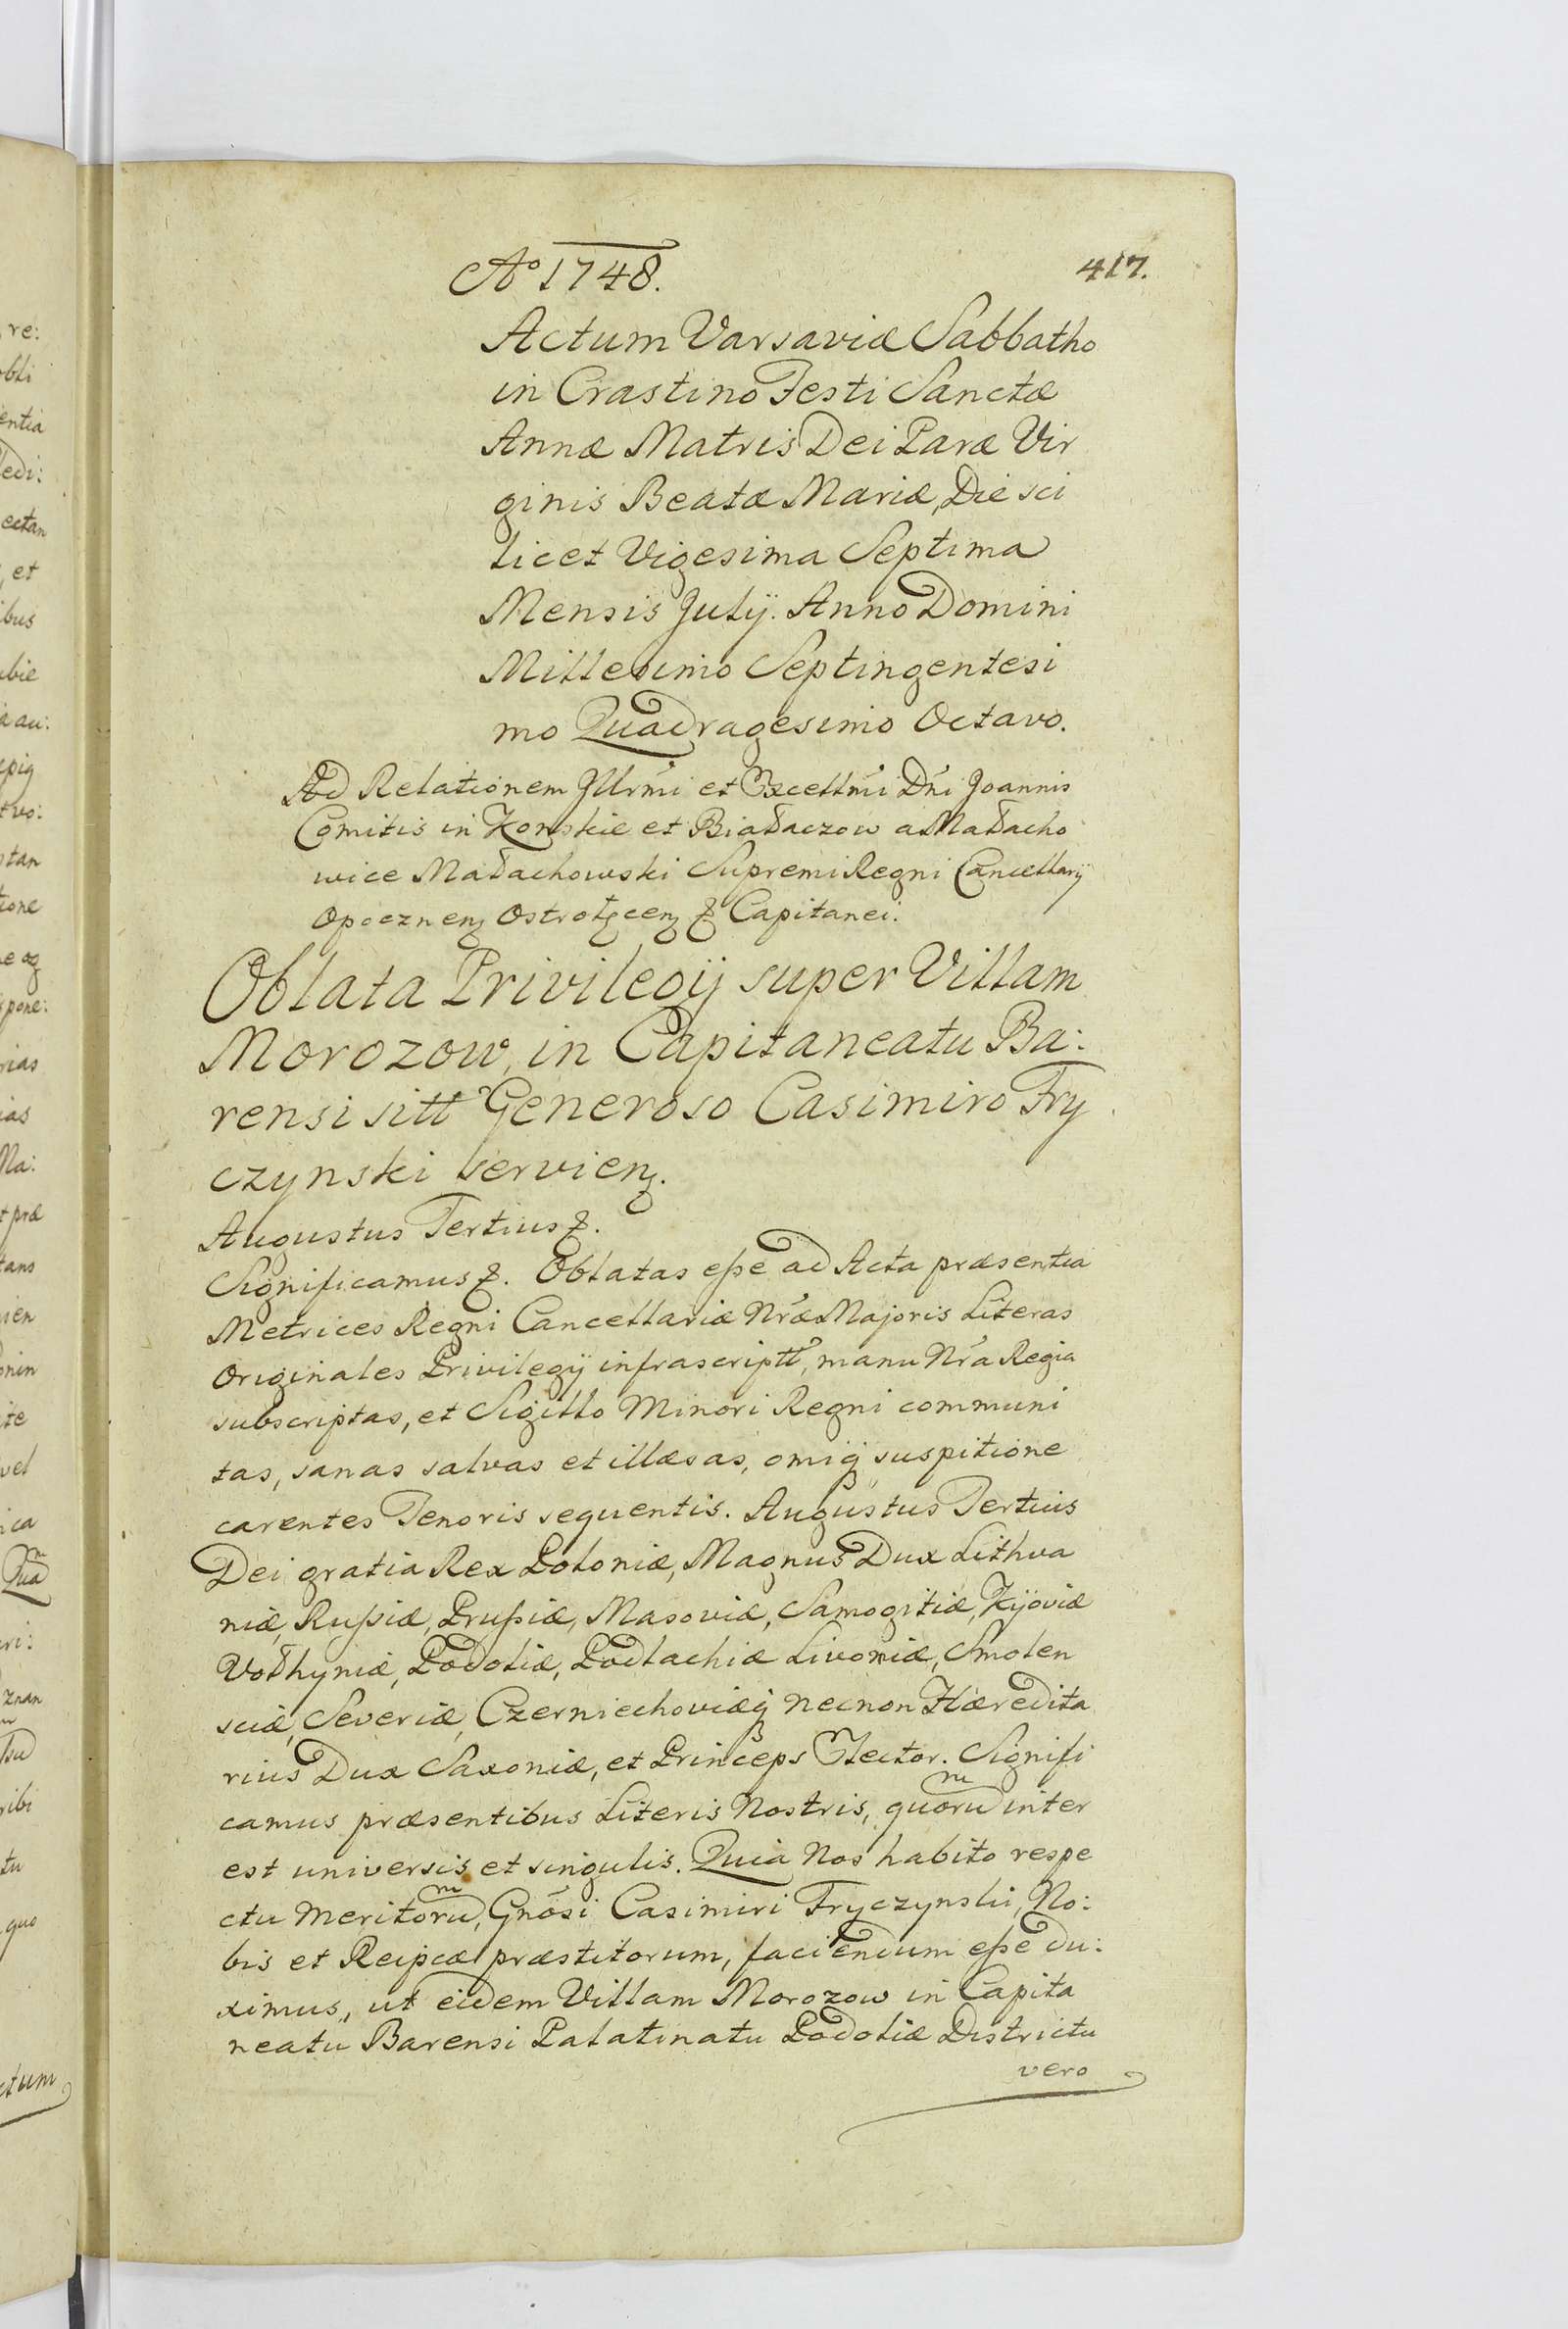 Aº 1748.
417.
Actum Varsaviæ Sabbatho
in Crastino Festi Sanctæ
Annæ Matris Dei Paræ Vir
ginis Beatæ Mariæ, Die sci
licet Vigesima Septima
Mensis Julÿ. Anno Domini
Millesimo Septingentesi
mo Quadragesimo Octavo.
Ad Relationem Illrmi et Excellmi Dni Joannis
Comitis in Konskie et Białaczow a Małacho
wice Małachowski Supremi Regni Cancellarÿ
Opocznen Ostrołęcen & Capitanei.
Oblata Privilegÿ super Villam
Morozow, in Capitaneatu Ba:
rensi sitt Generoso Casimiro Fry
czynski servien.
Augustus Tertius &.
Significamus &. Oblatas eſse ad Acta præsentia
Metrices Regni Cancellariæ Nræ Majoris Literas
Originales Privilegÿ infrascriptt, manu Nra Regia
subscriptas, et Sigillo Minori Regni communi
tas, sanas salvas et illæsas, omiq suspitione
carentes Tenoris sequentis. Augustus Tertius
Dei gratia Rex Poloniæ, Magnus Dux Lithva
niæ, Ruſsiæ, Pruſsiæ, Masoviæ, Samogitiæ, Kijoviæ
Vołhyniæ, Podoliæ, Podlachiæ Livoniæ, Smolen
sciæ, Severiæ, Czerniechoviæq necnon Hæredita
rius Dux Saxoniæ, et Princeps Elector. Signifi
camus præsentibus Literis Nostris, quorum inter
est universis et singulis. Quia Nos habito respe
ctu meritorum, Gnosi Casimiri Fryczynski, No:
bis et Reipcæ præstitorum, faciendum eſse du:
ximus, ut eidem Villam Morozow in Capita
neatu Barensi Palatinatu Podoliæ Districtu
vero